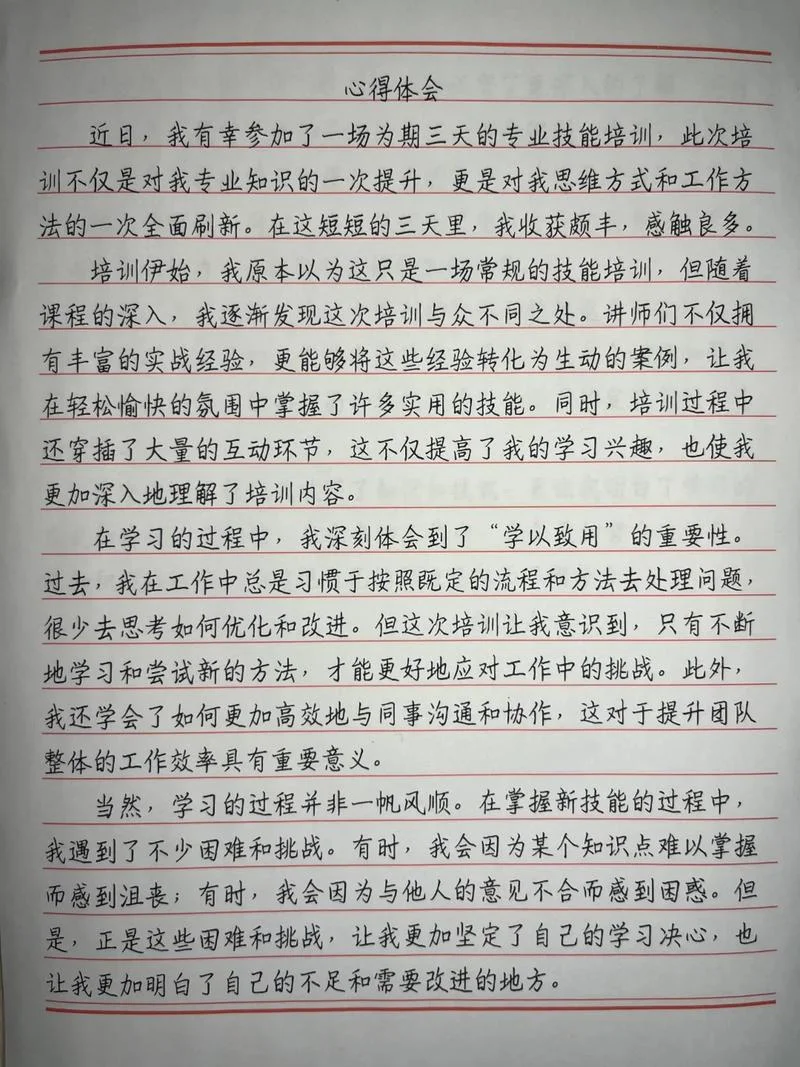 心得体会
近日，我有幸参加了一场为期三天的专业技能培训，此次培
训不仅是对我专业知识的一次提升，更是对我思维方式和工作方
法的一次全面刷新。在这短短的三天里，我收获颇丰，感触良多。
培训伊始，我原本以为这只是一场常规的技能培训，但随着
课程的深入，我逐渐发现这次培训与众不同之处。讲师们不仅拥
有丰富的实战经验，更能够将这些经验转化为生动的案例，让我
在轻松愉快的氛围中掌握了许多实用的技能。同时，培训过程中
还穿插了大量的互动环节，这不仅提高了我的学习兴趣，也使我
更加深入地理解了培训内容。
在学习的过程中，我深刻体会到了“学以致用”的重要性。
过去，我在工作中总是习惯于按照既定的流程和方法去处理问题，
很少去思考如何优化和改进。但这次培训让我意识到，只有不断
地学习和尝试新的方法，才能更好地应对工作中的挑战。此外，
我还学会了如何更加高效地与同事沟通和协作，这对于提升团队
整体的工作效率具有重要意义。
当然，学习的过程并非一帆风顺。在掌握新技能的过程中，
我遇到了不少困难和挑战。有时，我会因为某个知识点难以掌握
而感到沮丧；有时，我会因为与他人的意见不合而感到困惑。但
是，正是这些困难和挑战，让我更加坚定了自己的学习决心，也
让我更加明白了自己的不足和需要改进的地方。